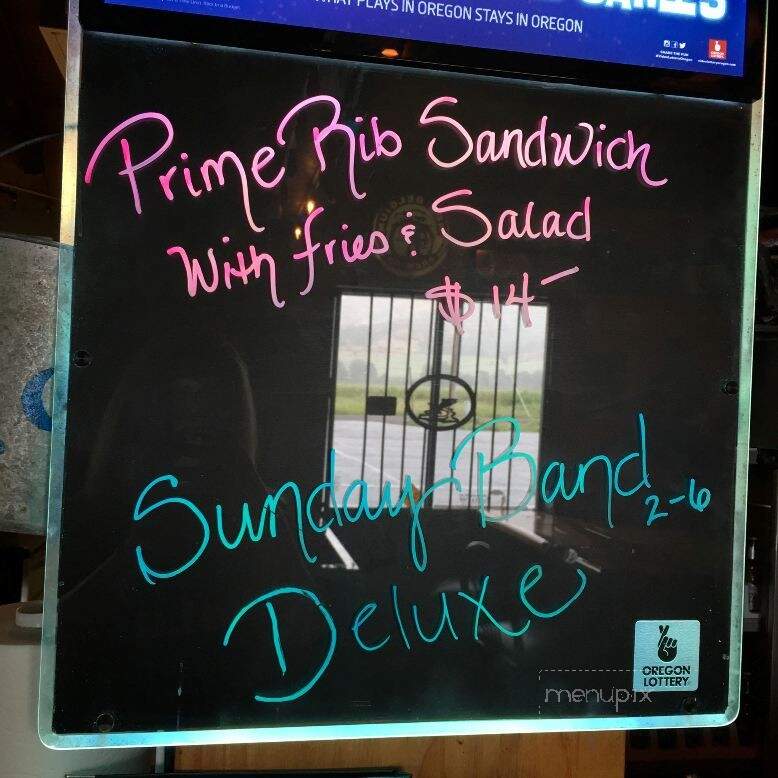 WHAT PLAYS IN OREGON STAYS IN OREGON
Prime Rib Sandwich
With fries & Salad
$14-
Sunday Band 2-6
Deluxe
OREGON
LOTTERY
menupix